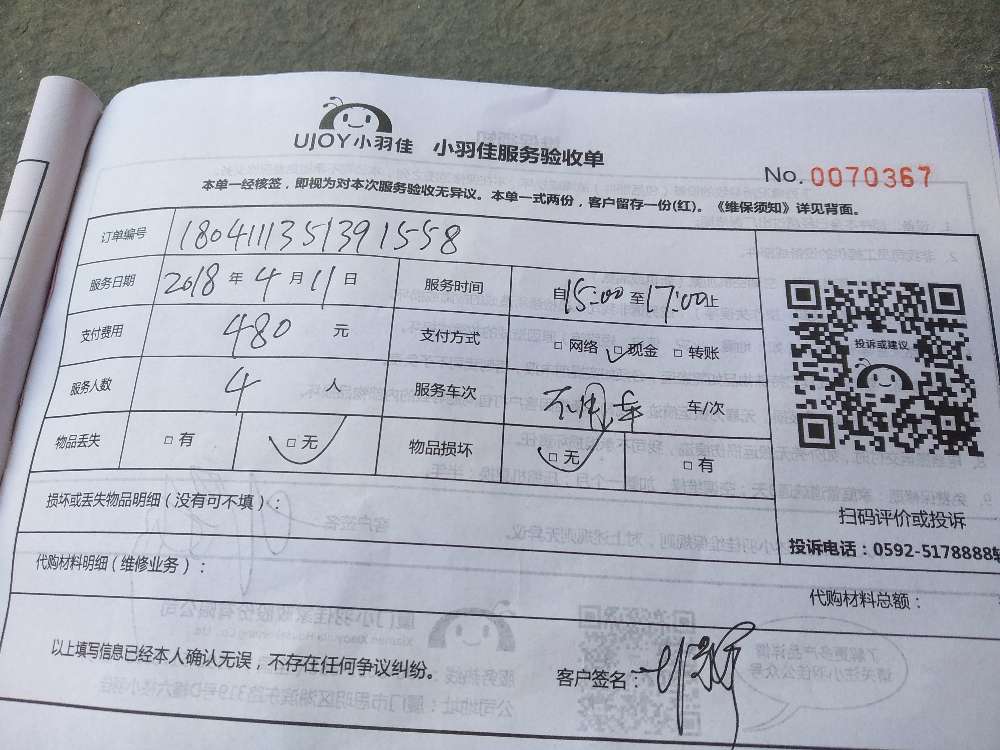 UJOY小羽佳 小羽佳服务验收单
No. 0070367
本单一经核签，即视为对本次服务验收无异议。本单一式两份，客户留存一份(红)。《维保须知》详见背面。
订单编号 180411135139 1558
服务日期 2018 年 4 月 11 日 服务时间 自15:00至17:00止
支付费用 480 元 支付方式 □ 网络 □ 现金 □ 转账
投诉或建议
服务人数 4 人 服务车次 不用车 车/次
物品丢失 □ 有 □ 无 物品损坏 □ 无 □ 有
损坏或丢失物品明细（没有可不填）：
扫码评价或投诉
投诉电话：0592-5178888转
代购材料明细（维修业务）：
代购材料总额：
以上填写信息已经本人确认无误，不存在任何争议纠纷。
客户签名：